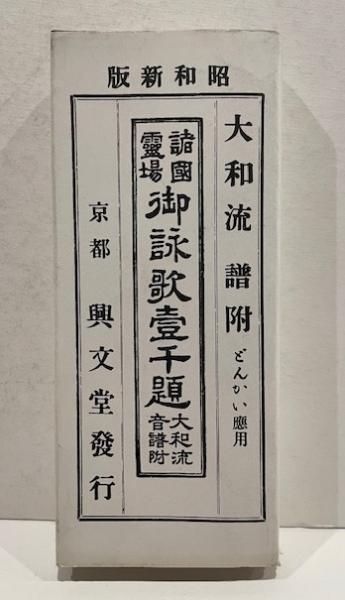 昭和新版
大和流 譜附 どんかい應用
諸國靈場
御詠歌壹千題
大和流音譜附
京都 興文堂發行